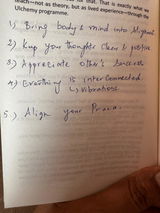 reach—not as theory, but as lived experience—through the
Ulchemy programme.
1) Bring body & mind into Alignment
2) Keep your thoughts Clear & positive
3) Appreciate other's success
4) Everything is interconnected.
↳ vibrations
5.) Align your Prana.